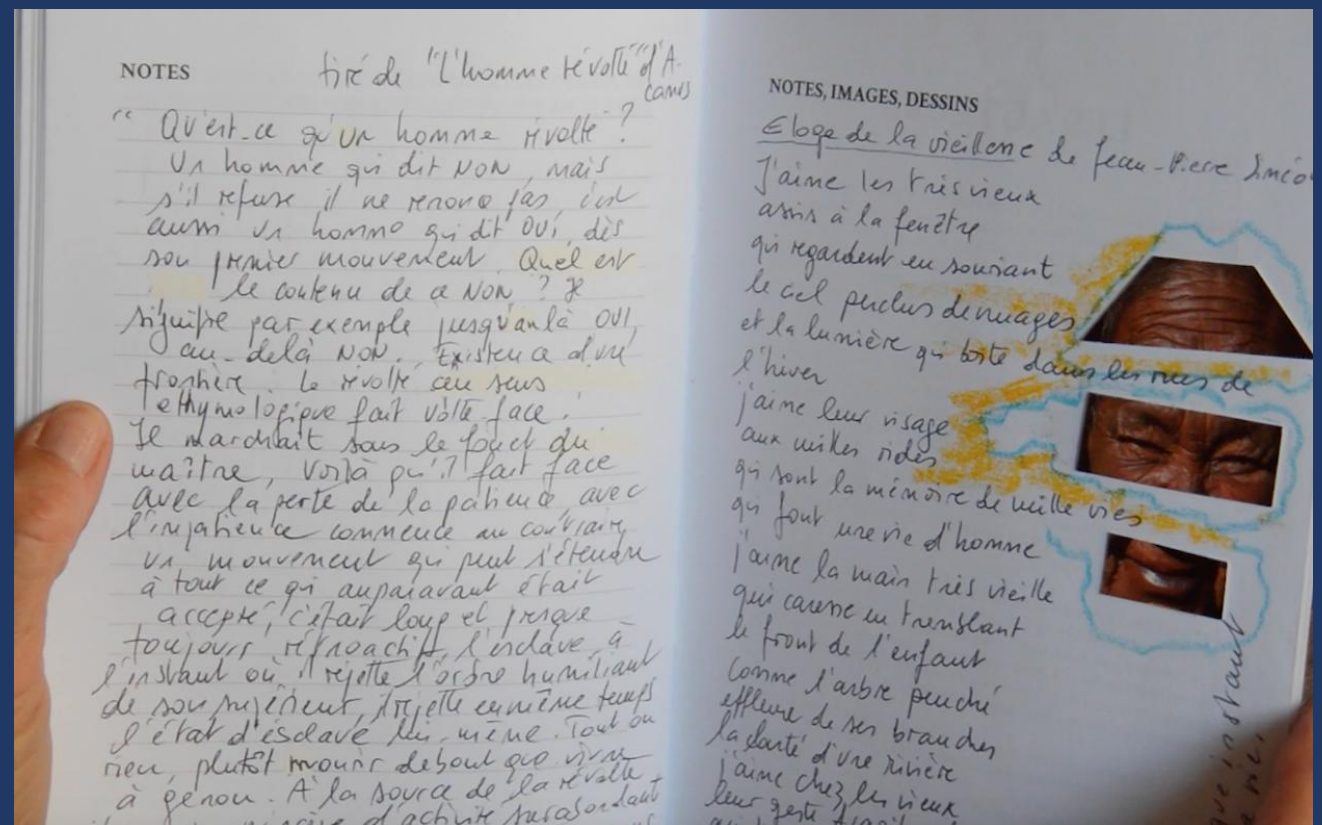 NOTES
tiré de "L'homme révolté" d'A.
Camus
"Qu'est-ce qu'un homme révolté ?
Un homme qui dit NON, mais
s'il refuse il ne renonce pas, c'est
aussi un homme qui dit OUI, dès
son premier mouvement. Quel est
le contenu de ce NON ? Il
signifie par exemple jusque là OUI,
au-delà NON. Existence d'une
frontière. Le révolté au sens
ethymologique fait volte face.
Il marchait sous le fouet du
maître, voilà qu'il fait face
avec la perte de la patience, avec
l'impatience commence au contraire
un mouvement qui peut s'étendre
à tout ce qui auparavant était
accepté, c'était et presque
toujours rétroactif, l'esclave, à
l'instant où il rejette l'ordre humiliant
de son supérieur, il rejette en même temps
l'état d'esclave lui-même. Tout ou
rien, plutôt mourir debout que vivre
à genou. À la source de la révolte
d'activité surabondant
NOTES, IMAGES, DESSINS
Eloge de la vieillesse de Jean-Pierre Siméo
J'aime les très vieux
assis à la fenêtre
qui regardent en souriant
le ciel perclus de nuages
et la lumière qui boite dans les rues de
l'hiver
j'aime leur visage
aux milles rides
qui sont la mémoire de mille vies
qui font une vie d'homme
j'aime la main très vieille
qui caresse en tremblant
le front de l'enfant
comme l'arbre penché
effleure de ses branches
la clarté d'une rivière
j'aime chez les vieux
leur geste
que instant
a vie,